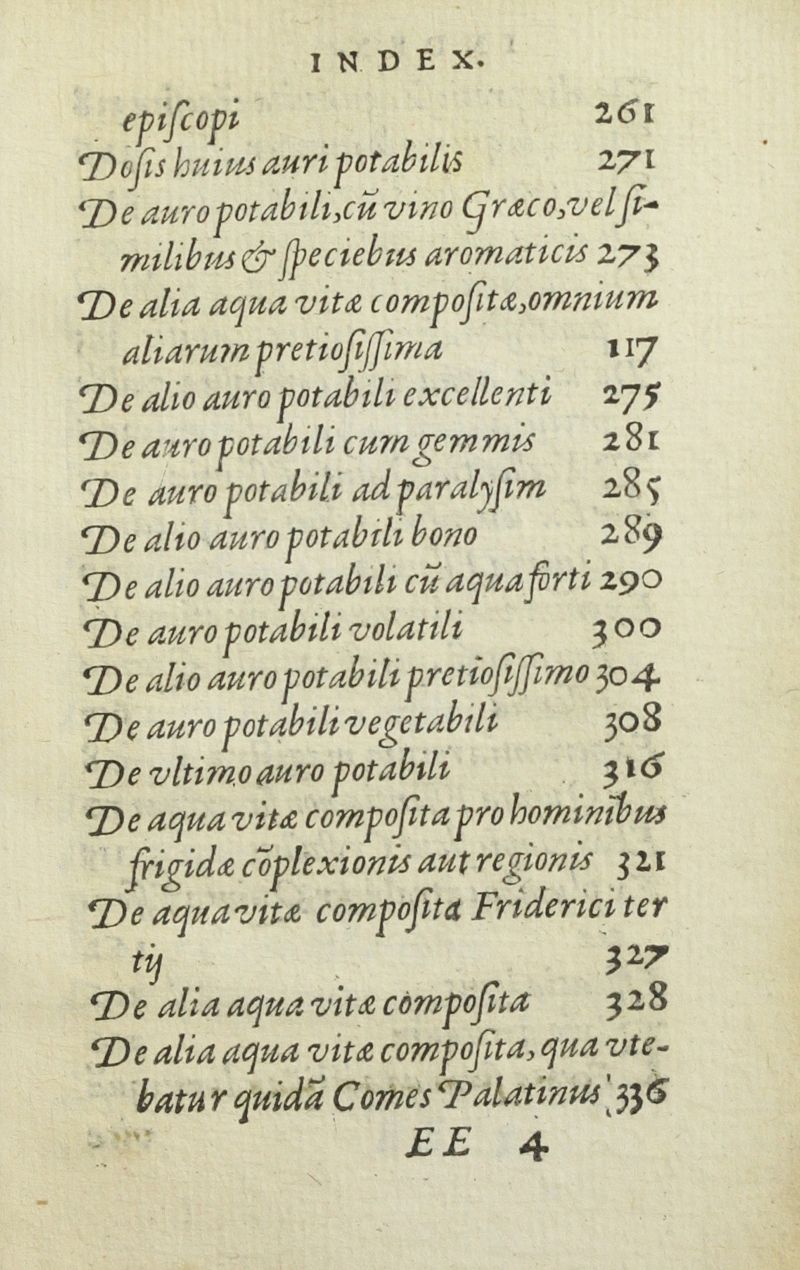 INDEX.
epiſcopi 261
Doſis huius auri potabilis 271
De auro potabili,cū vino Græco,vel ſi-
milibus & ſpeciebus aromaticis 273
De alia aqua vitæ compoſitæ,omnium
aliarum pretioſiſſima 117
De alio auro potabili excellenti 275
De auro potabili cum gemmis 281
De auro potabili ad paralyſim 285
De alio auro potabili bono 289
De alio auro potabili cū aqua forti 290
De auro potabili volatili 300
De alio auro potabili pretioſiſſimo 304
De auro potabili vegetabili 308
De vltimo auro potabili 316
De aqua vitæ compoſita pro hominibus
frigidæ cōplexionis aut regionis 321
De aqua vitæ compoſita Friderici ter
tij 327
De alia aqua vitæ compoſita 328
De alia aqua vitæ compoſita, qua vte-
batur quidā Comes Palatinus 336
EE 4